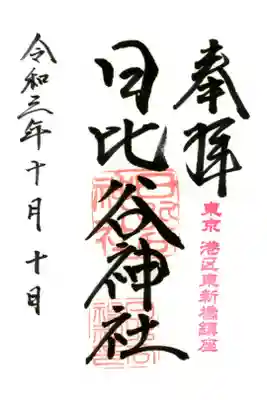 奉拝
東京 港区東新橋鎮座
日比谷神社
令和三年十月十日